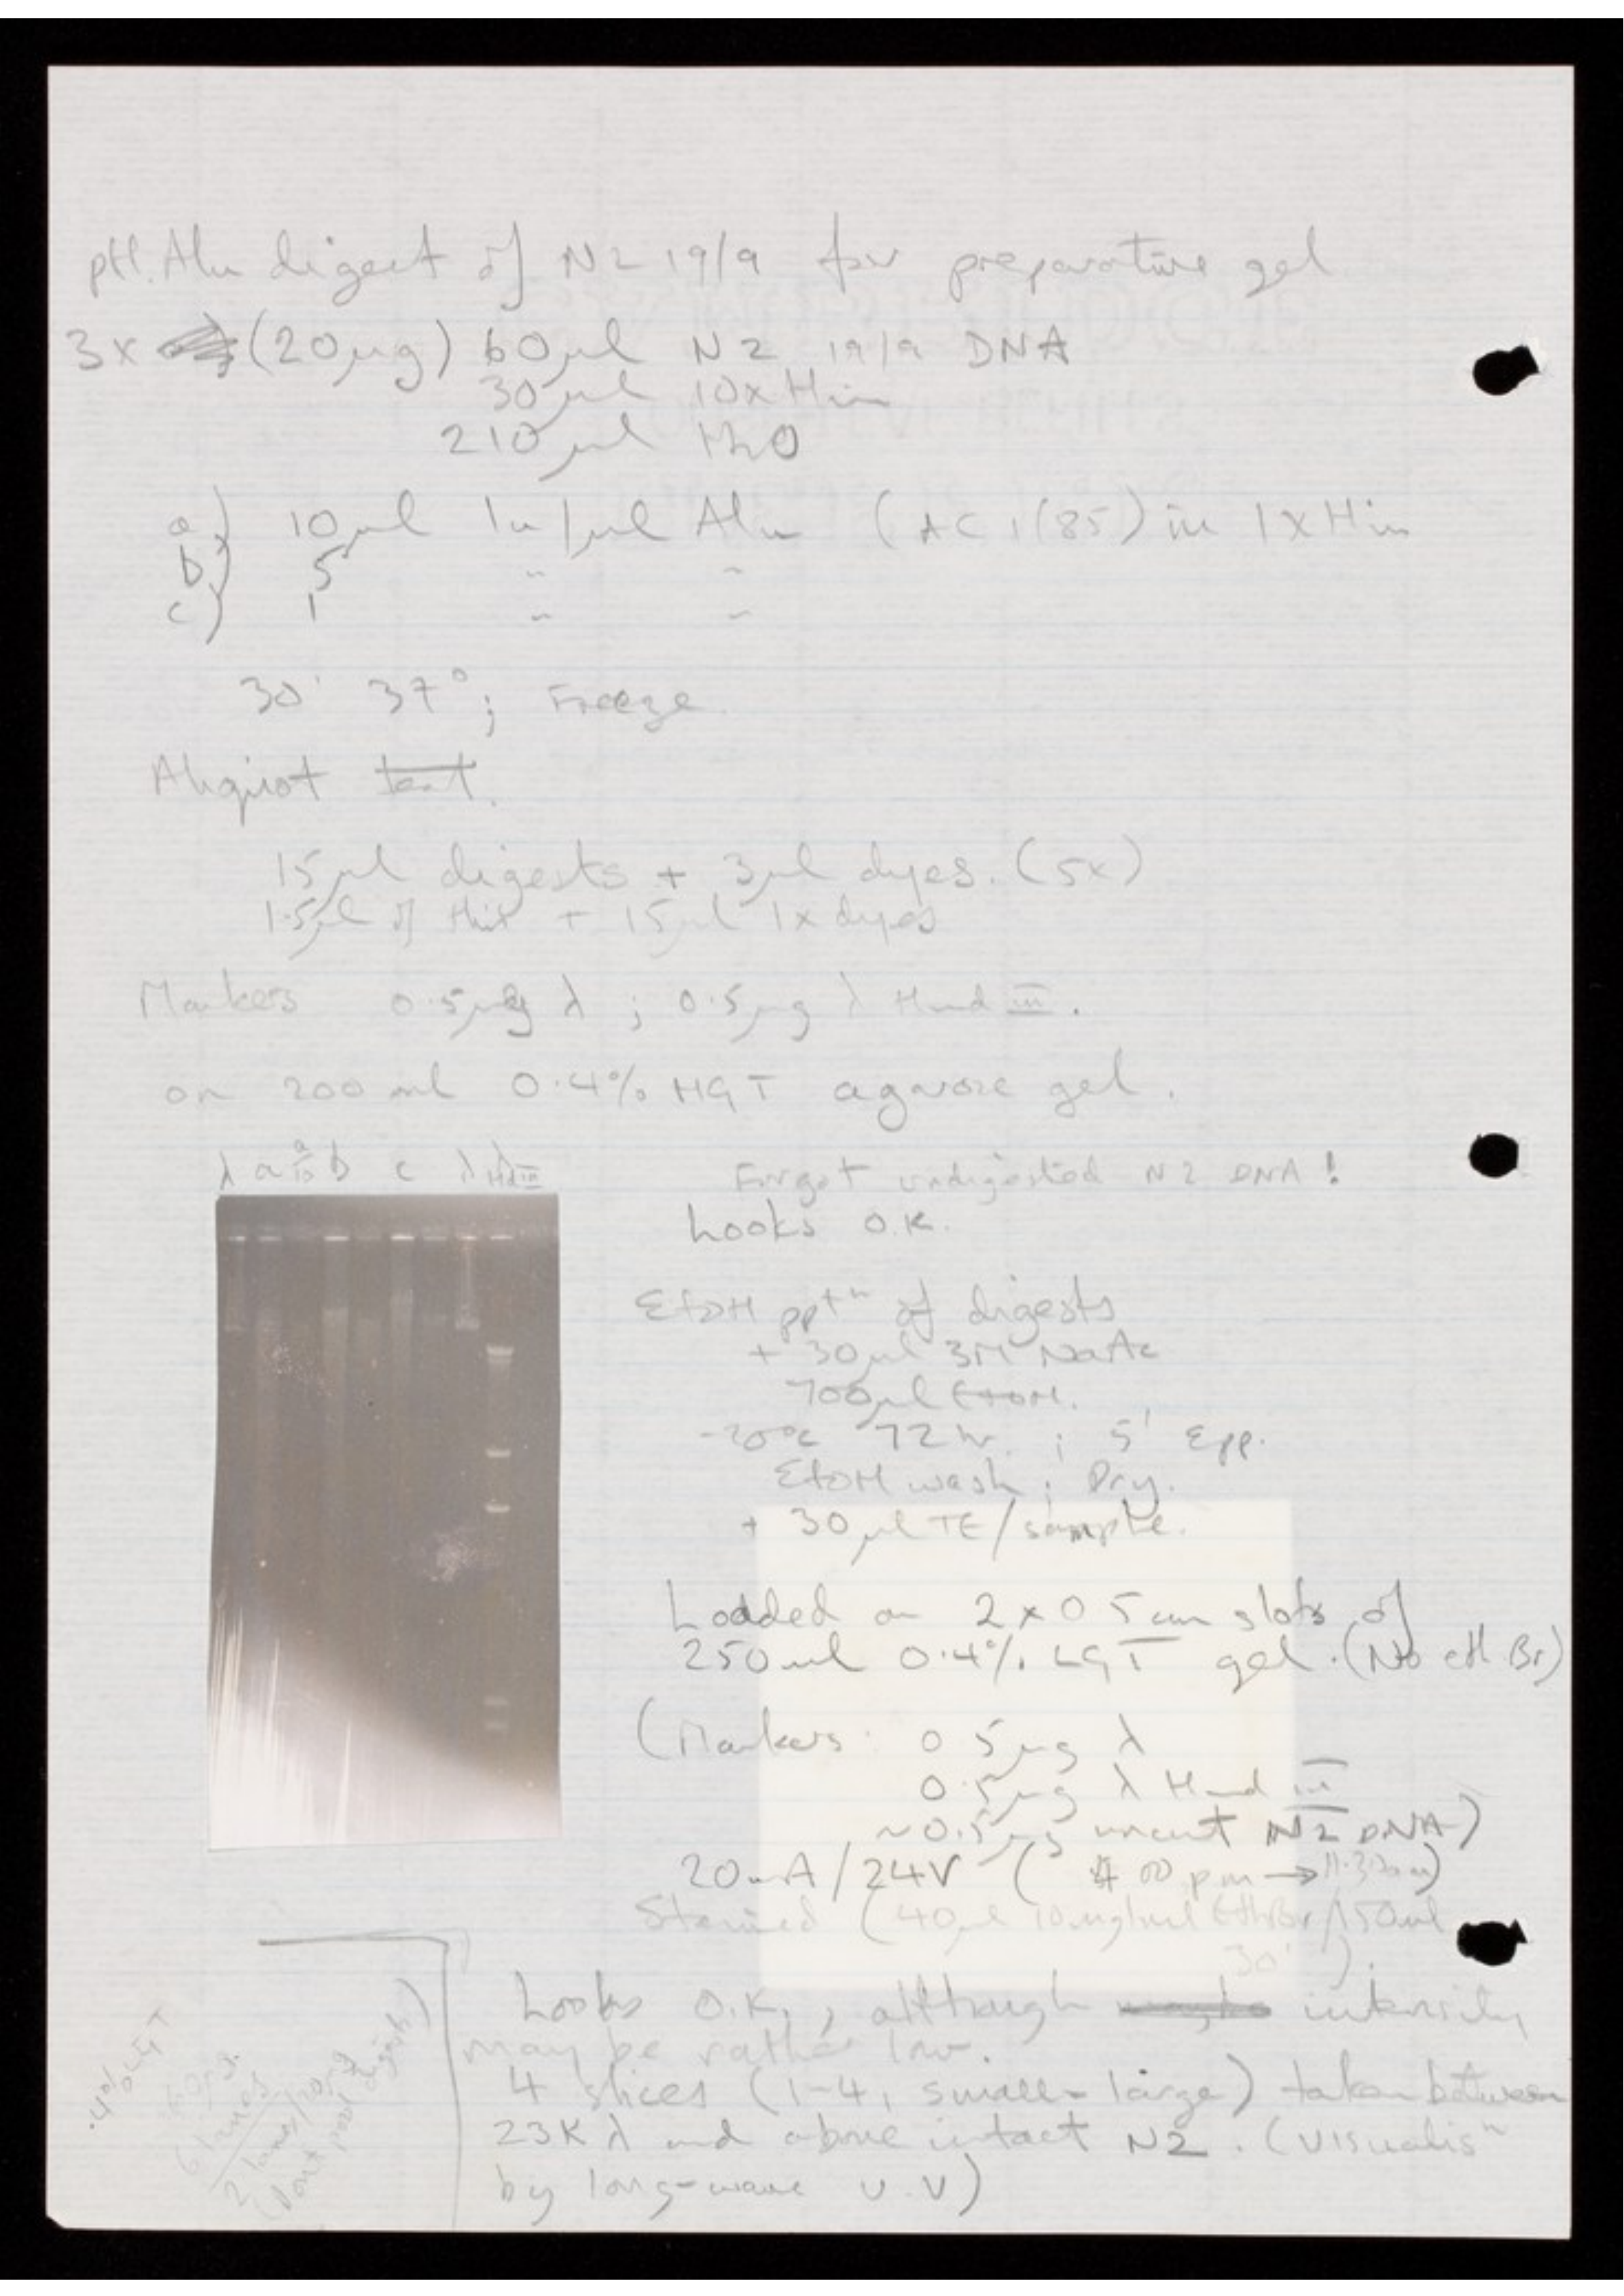 ptl. Alu digest of N2 19/9 for preparative gel
3x (20µg) 60µl N2 19/9 DNA
30µl 10x Hin
210µl H2O
a) 10µl 1u/µl Alu (AC 1(85) in 1x Hin
b) 5 " "
c) 1 " "
30' 37°; Freeze.
Aliquot test.
15µl digests + 3µl dyes. (5x)
1.5µl of this + 15µl 1x dyes
Markers 0.5µg λ ; 0.5µg λ Hind III.
on 200 ml 0.4% HGT agarose gel.
λ a a/10 b c λ λ HdIII
Forgot undigested N2 DNA!
Looks O.K.
EtOH pptn of digests
+ 30µl 3M NaAc
700µl EtOH.
-20°C 72 hr. ; 5' Epp.
EtOH wash ; Dry.
+ 30µl TE/sample.
Loaded on 2 x 0.5cm slots of
250ml 0.4% LGT gel. (No eth Br)
(Markers: 0.5µg λ
0.5µg λ Hind III
~0.5µg uncut N2 DNA)
20mA/24V (4 00 pm → 11.30am)
Stained (40µl 10mg/ml EthBr/150ml
30').
Looks O.K., although intensity
may be rather low.
4 slices (1-4, small-large) taken between
23K λ and above intact N2. (visualisn
by long-wave U.V)
.4% LGT
60µl
6 lanes
2 lanes/20µg
(Dont pool digests)